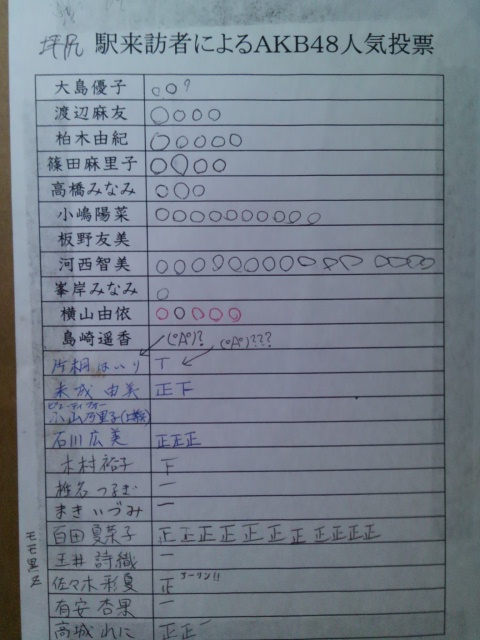 坪尻 駅来訪者によるAKB48人気投票
大島優子 ○○?
渡辺麻友 ○○○○
柏木由紀 ○○○○○
篠田麻里子 ○○○○
高橋みなみ ○○○
小嶋陽菜 ○○○○○○○○○○
板野友美
河西智美
峯岸みなみ ○
横山由依 ○○○○○
島崎遥香 (°A°)? (°A°)???
片桐はいり 丅
未城由美 正下
ビューティフォー
小山乃里子
石川広美 正正正
木村裕子 下
椎名つるむ 一
まきいづみ 一
百田夏菜子 正正正正正正正正正正正
玉井詩織 一
佐々木彩夏 正 ーリン!!
有安杏果 一
高城れに 正正一